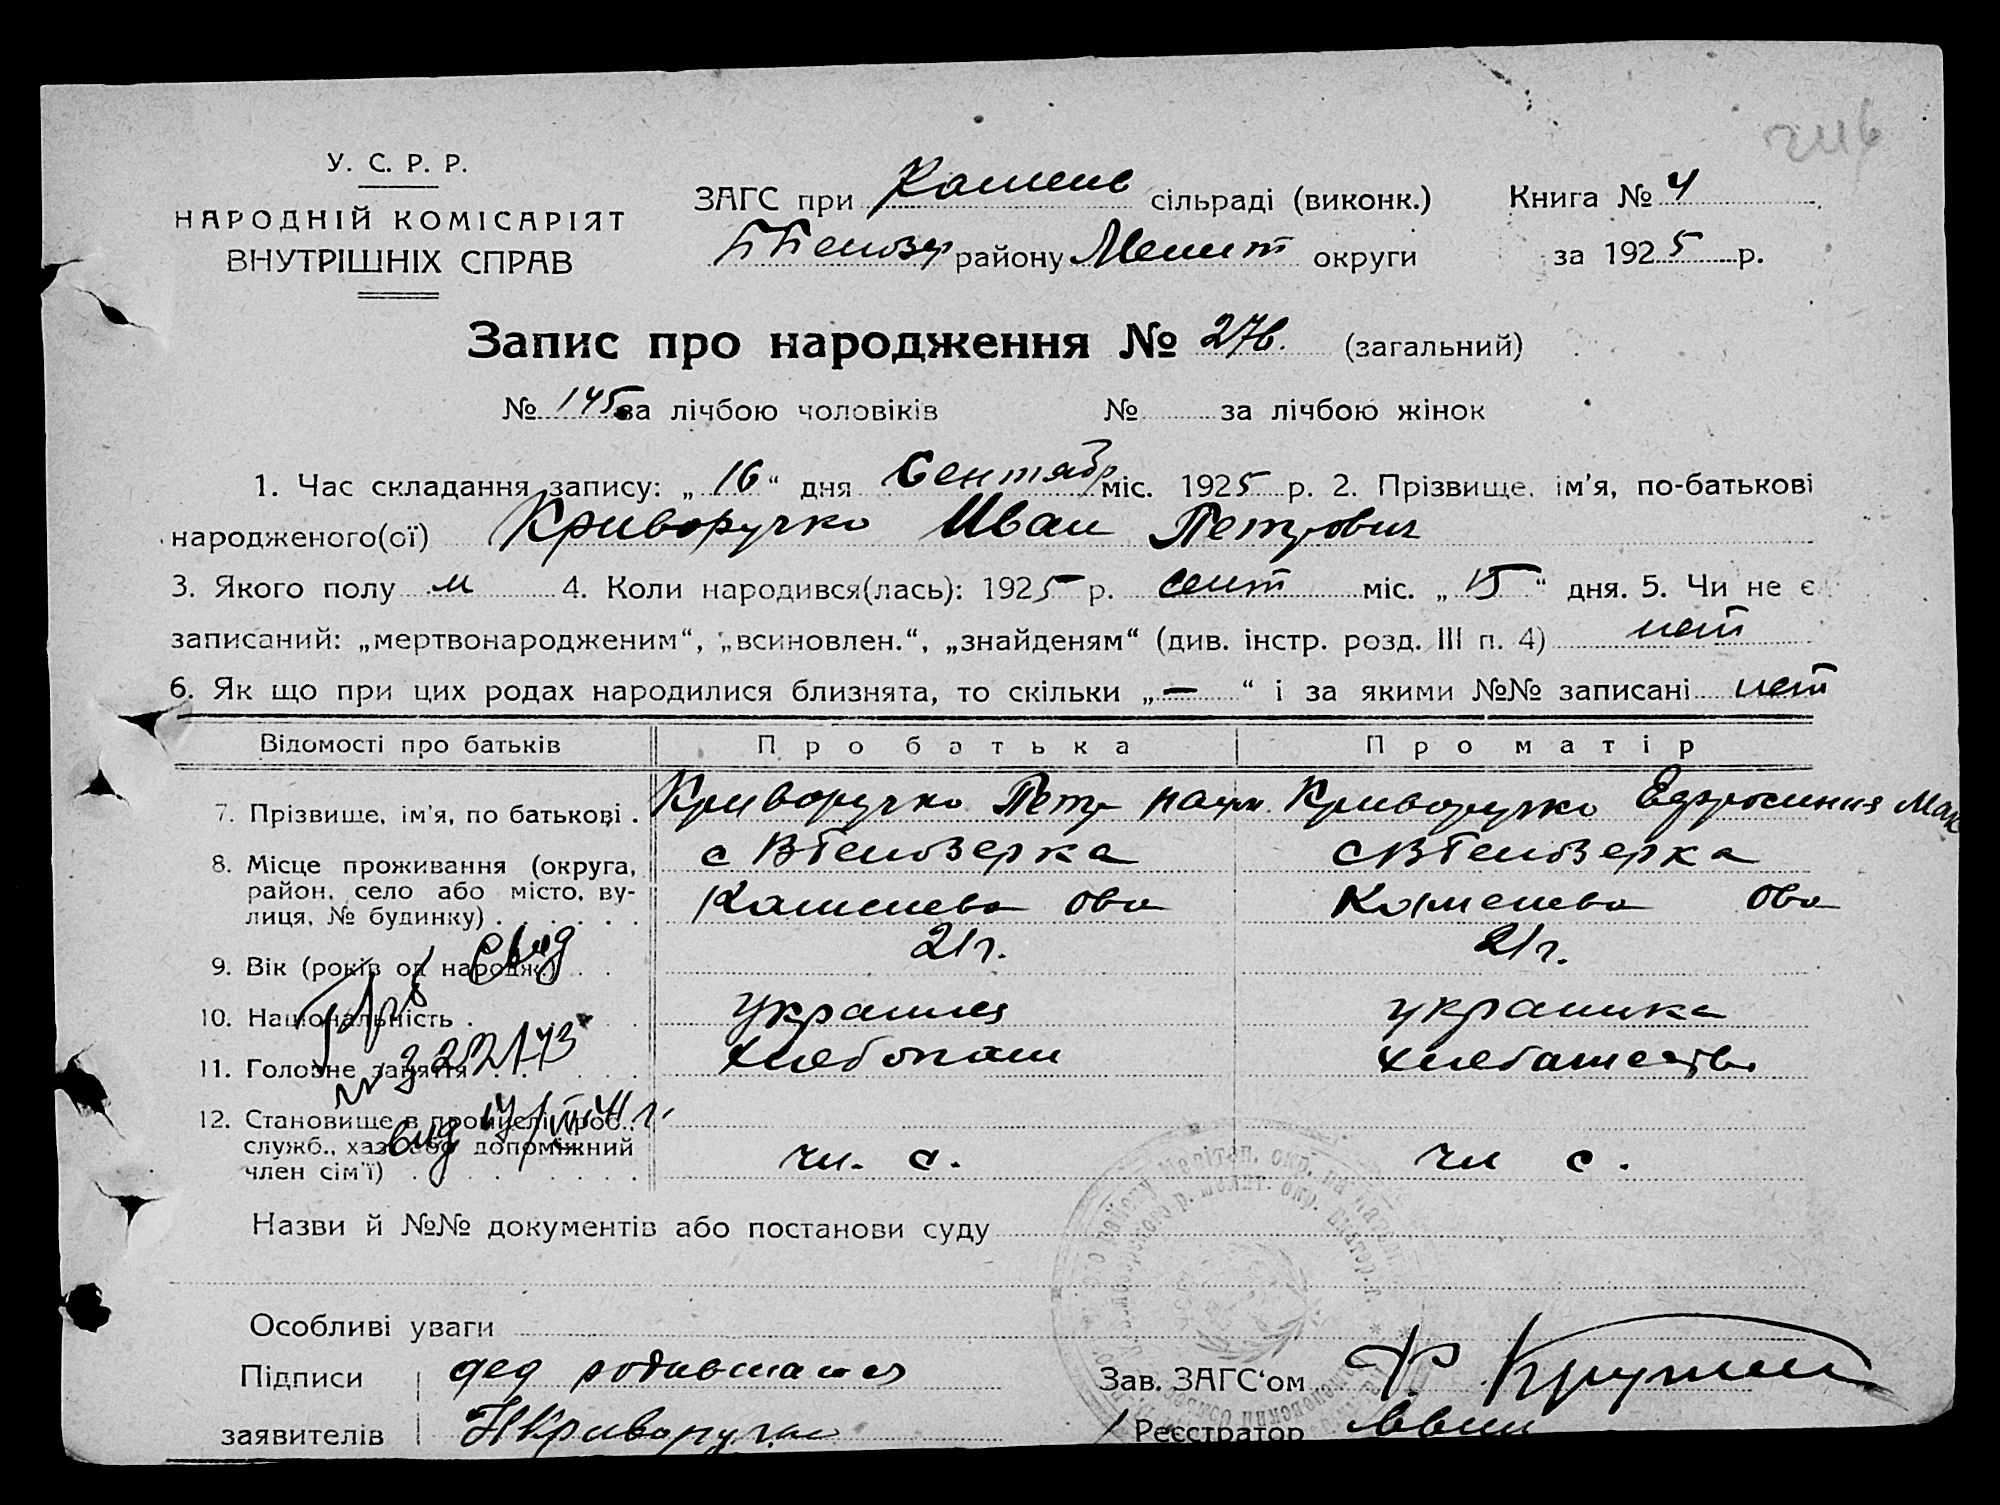 У. С. Р. Р.
НАРОДНІЙ КОМІСАРІЯТ
ВНУТРІШНІХ СПРАВ
ЗАГС при Камене сільраді (виконк.)
ББелозер району Мелит округи
Книга № 4
за 1925 р.
Запис про народження № 276. (загальний)
№ 145 за лічбою чоловіків № за лічбою жінок
1. Час складання запису: „16“ дня Сентябр міс. 1925 р. 2. Прізвище, ім'я, по-батькові
народженого(ої) Криворучко Иван Петрович
3. Якого полу м 4. Коли народився(лась): 1925 р. сент міс. „15“ дня. 5. Чи не є
записаний: „мертвонародженим“, „всиновлен.“, „знайденям“ (див. інстр. розд. III п. 4) нет
6. Як що при цих родах народилися близнята, то скільки „—“ і за якими №№ записані нет
Відомості про батьків Про батька Про матір
7. Прізвище, ім'я, по батькові . Криворучко Петр Наум Криворучко Ефросиния Мак
8. Місце проживання (округа, с ВБелозерка с ВБелозерка
район, село або місто, ву-
лиця, № будинку) . . . . . Каменева ова Каменева ова
9. Вік (років од народж.) . . 21 г. 21 г.
10. Національність . украинец украинка
11. Головне заняття . . . . хлебопаш хлебопашеств
12. Становище в промислі (роб.,
служб., хаз. або допоміжний
член сім'ї) . . . . . . чл. с. чл с.
свид
322173
выд
Назви й №№ документів або постанови суду
Особливі уваги
Підписи дед родившагося
заявителів НКриворучко
Зав. ЗАГС'ом
Реєстратор